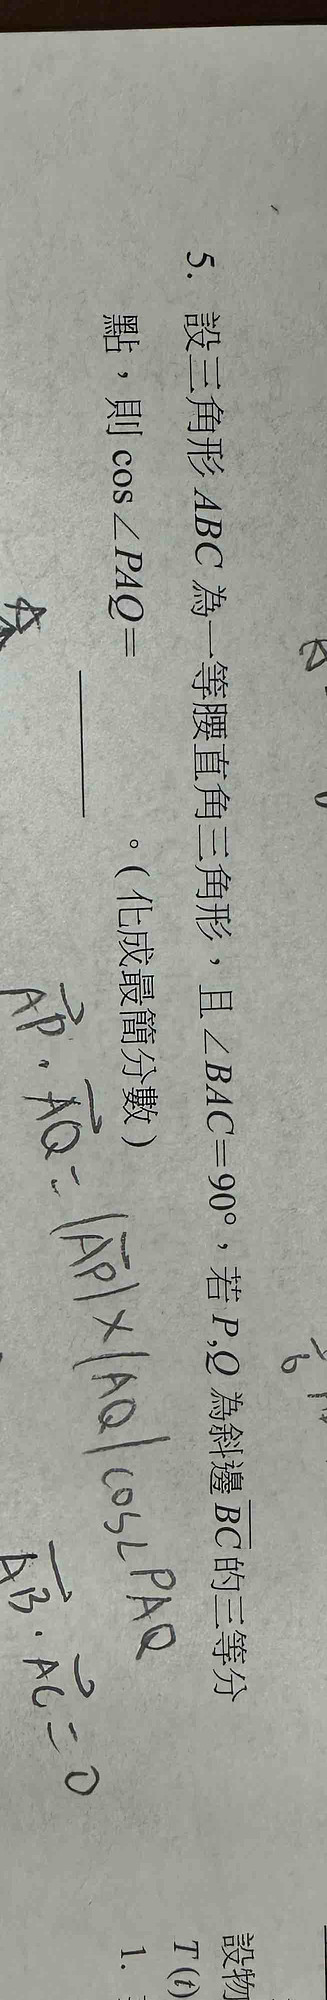 5. 設三角形 ABC 為一等腰直角三角形，且 ∠BAC=90°，若 P,Q 為斜邊 \overline{BC} 的三等分
點，則 cos∠PAQ= ______ 。(化成最簡分數)
A
\vec{AP} · \vec{AQ} = |\vec{AP}| × |AQ| cos∠PAQ
\vec{AB} · \vec{AC} = 0
設物
T(t)
1.